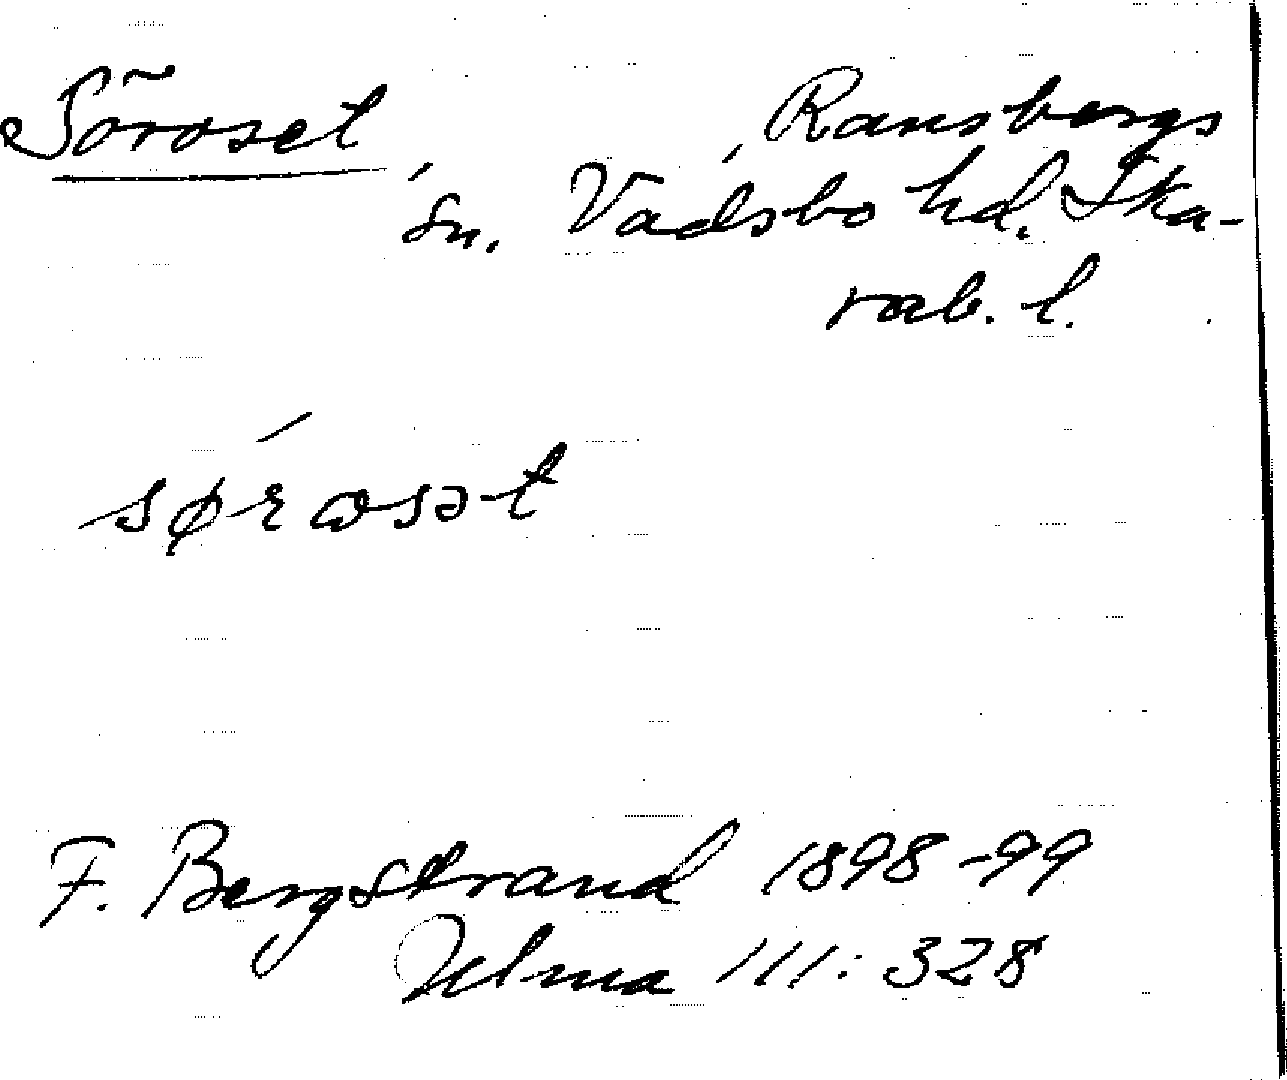 Söroset
Ransbergs
sn. Vadsbo hd. Ska-
rab. l.
sørɷsət
F. Bergstrand 1898-99
Ulma 111:328